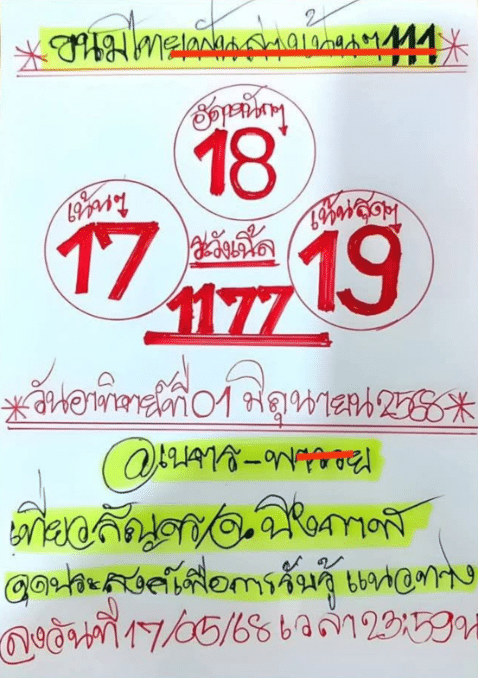 อัดหนักๆ
18
เน้นๆ
17
ระวังเบิ้ล
1177
เน้นสุดๆ
19
วันอาทิตย์ที่ 01 มิถุนายน 2568
เที่ยวสัญจร/จ. บึงกาฬ
จุดประสงค์เพื่อการรับรู้ แนวทาง
ลงวันที่ 17/05/68 เวลา 23:59 น